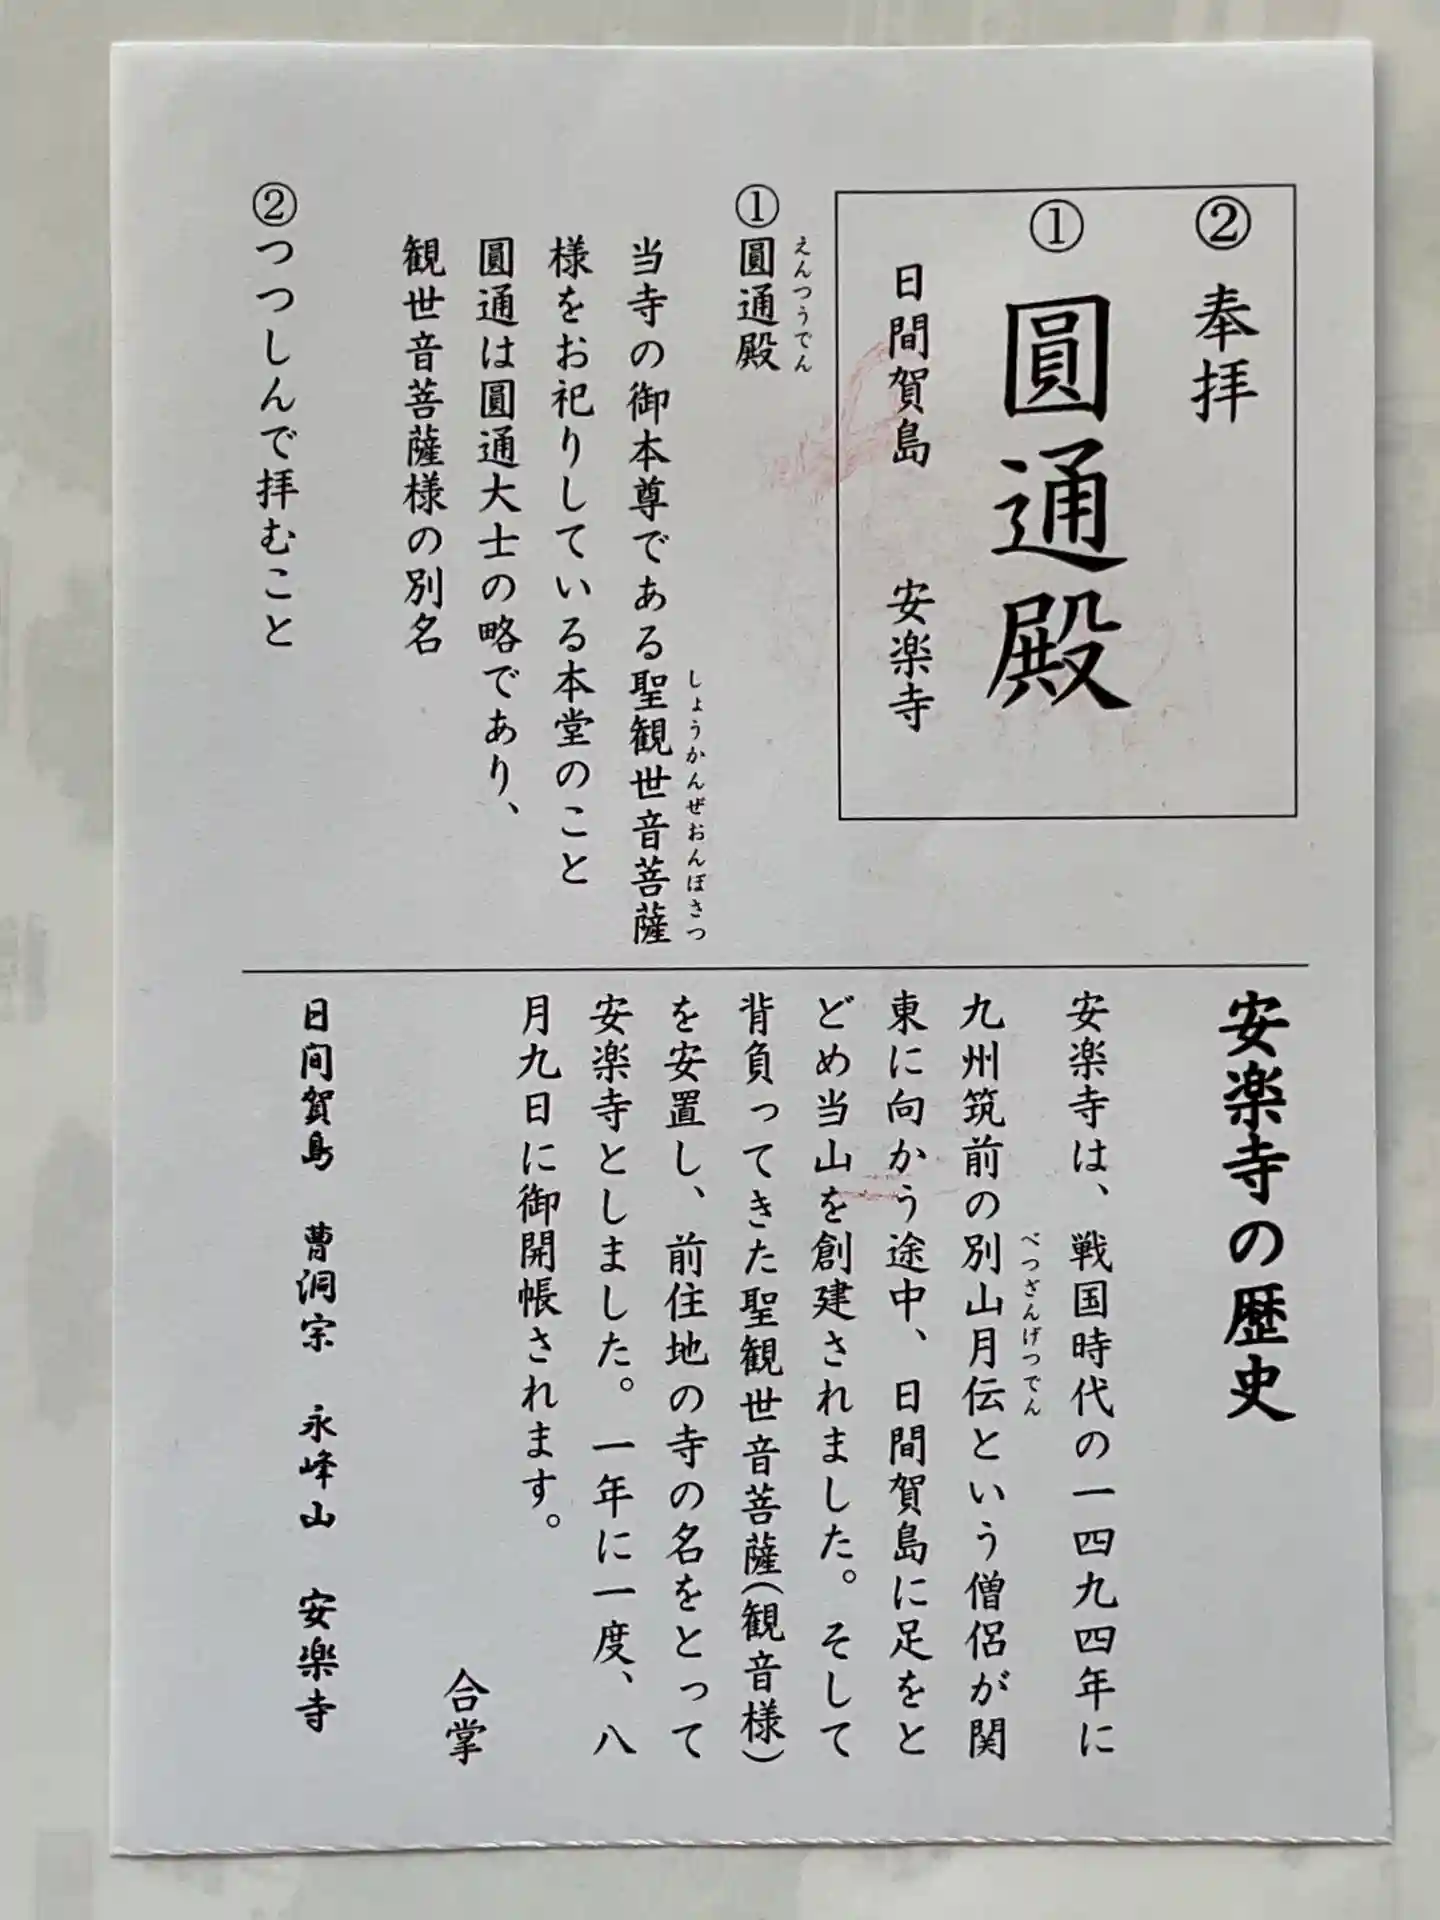 ②奉拝
①圓通殿
日間賀島 安楽寺
えんつうでん
①圓通殿
しょうかんぜおんぼさつ
当寺の御本尊である聖観世音菩薩
様をお祀りしている本堂のこと
圓通は圓通大士の略であり、
観世音菩薩様の別名
②つつしんで拝むこと
安楽寺の歴史
安楽寺は、戦国時代の一四九四年に
べつざんげつでん
九州筑前の別山月伝という僧侶が関
東に向かう途中、日間賀島に足をと
どめ当山を創建されました。そして
背負ってきた聖観世音菩薩(観音様)
を安置し、前住地の寺の名をとって
安楽寺としました。一年に一度、八
月九日に御開帳されます。
合掌
日间賀島 曹洞宗 永峰山 安楽寺